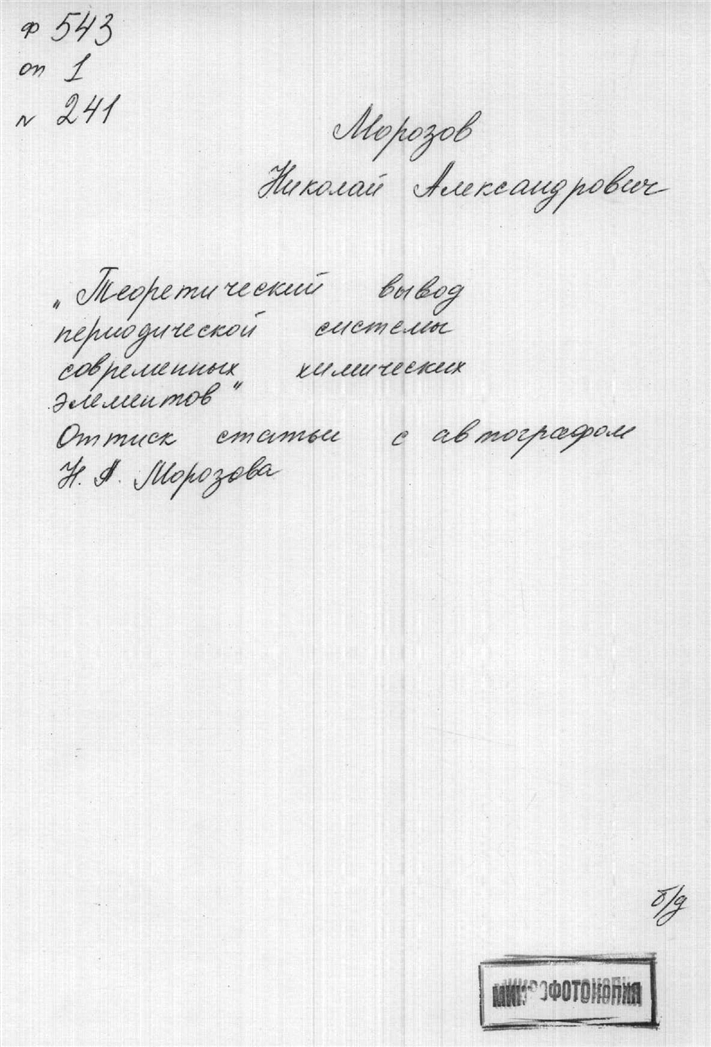 ф 543
оп 1
N 241
Морозов
Николай Александрович
„Теоретический вывод
периодической системы
современных химических
элементов"
Оттиск статьи с автографом
Н. А. Морозова
б/д
МИКРОФОТОКОПИЯ